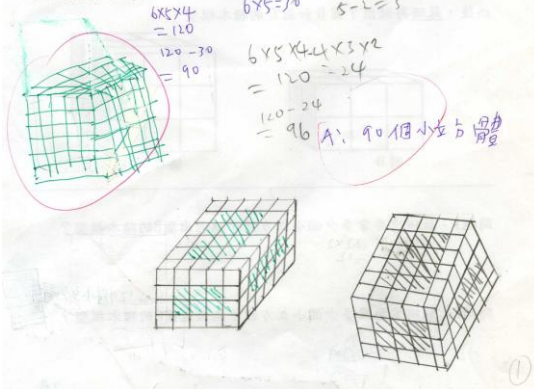 6×5×4
=120
120-30
=90
6×5=30
5-2=3
6×5×4-4×3×2
=120-24
120-24
=96
A: 90個小立方體
①